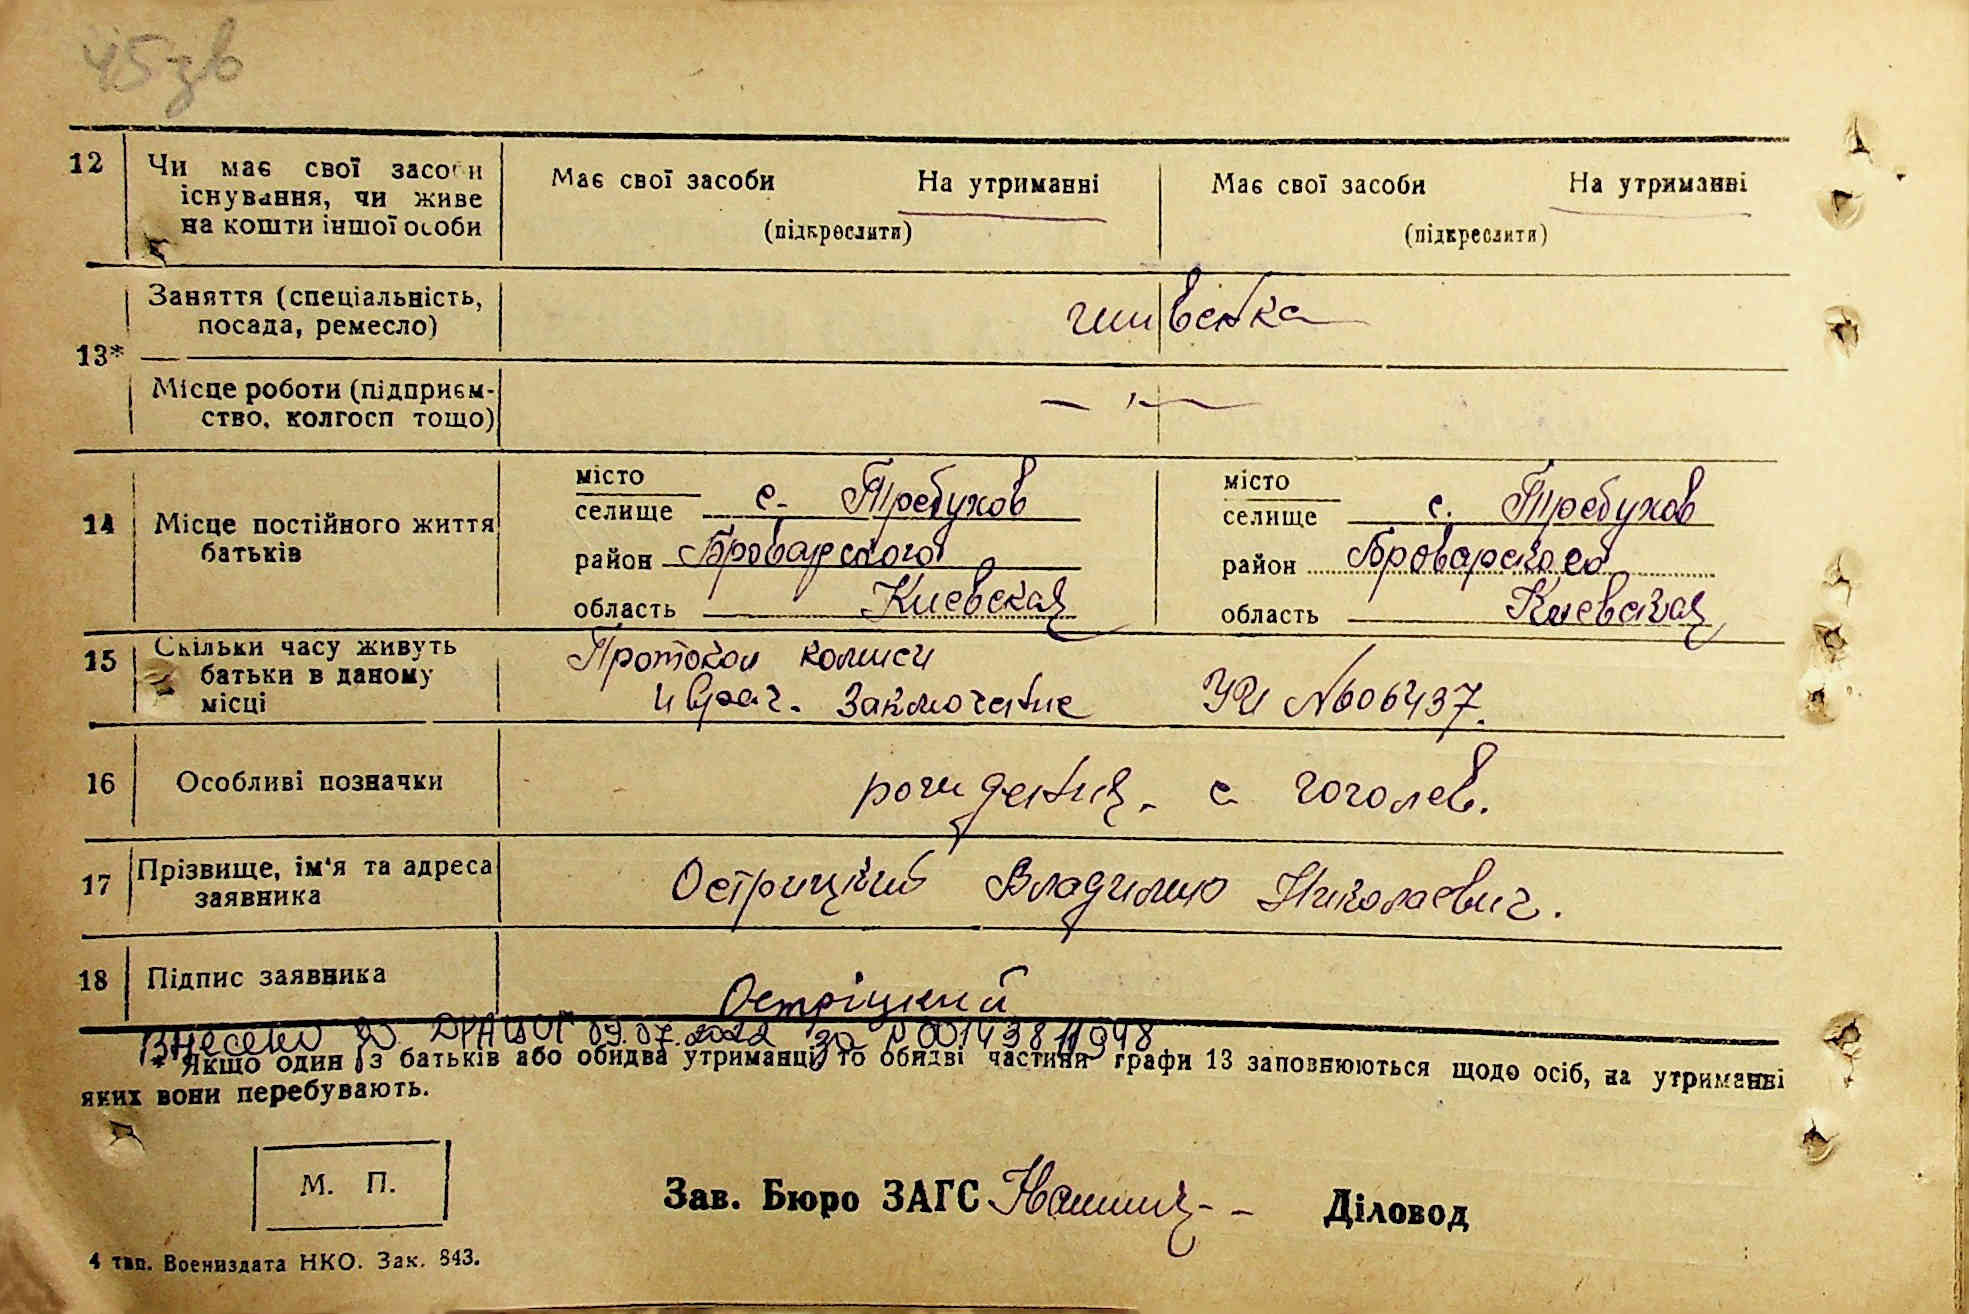 45зв
12 Чи має свої засоби Має свої засоби На утриманні Має свої засоби На утриманні
існування, чи живе
на кошти іншої особи (підкреслити) (підкреслити)
Заняття (спеціальність,
посада, ремесло)
13*
Місце роботи (підприєм-
ство, колгосп тощо)
місто місто
селище с. Требухов селище с. Требухов
14 Місце постійного життя
батьків район Броварского район Броварского
область Киевская область Киевская
15 Скільки часу живуть Протокол комиси
батьки в даному
місці и врач. Заключение УЯ №606437.
16 Особливі позначки с гоголев.
17 Прізвище, ім'я та адреса
заявника Острицкий Владимир Николаевич.
18 Підпис заявника Остріцкий
Внесено до ДРАЦСГ 09.07.2022 за № 00143811948
* Якщо один з батьків або обидва утриманці, то обидві частини графи 13 заповнюються щодо осіб, на утриманні
яких вони перебувають.
М. П.
Зав. Бюро ЗАГС Діловод
4 тип. Воениздата НКО. Зак. 843.